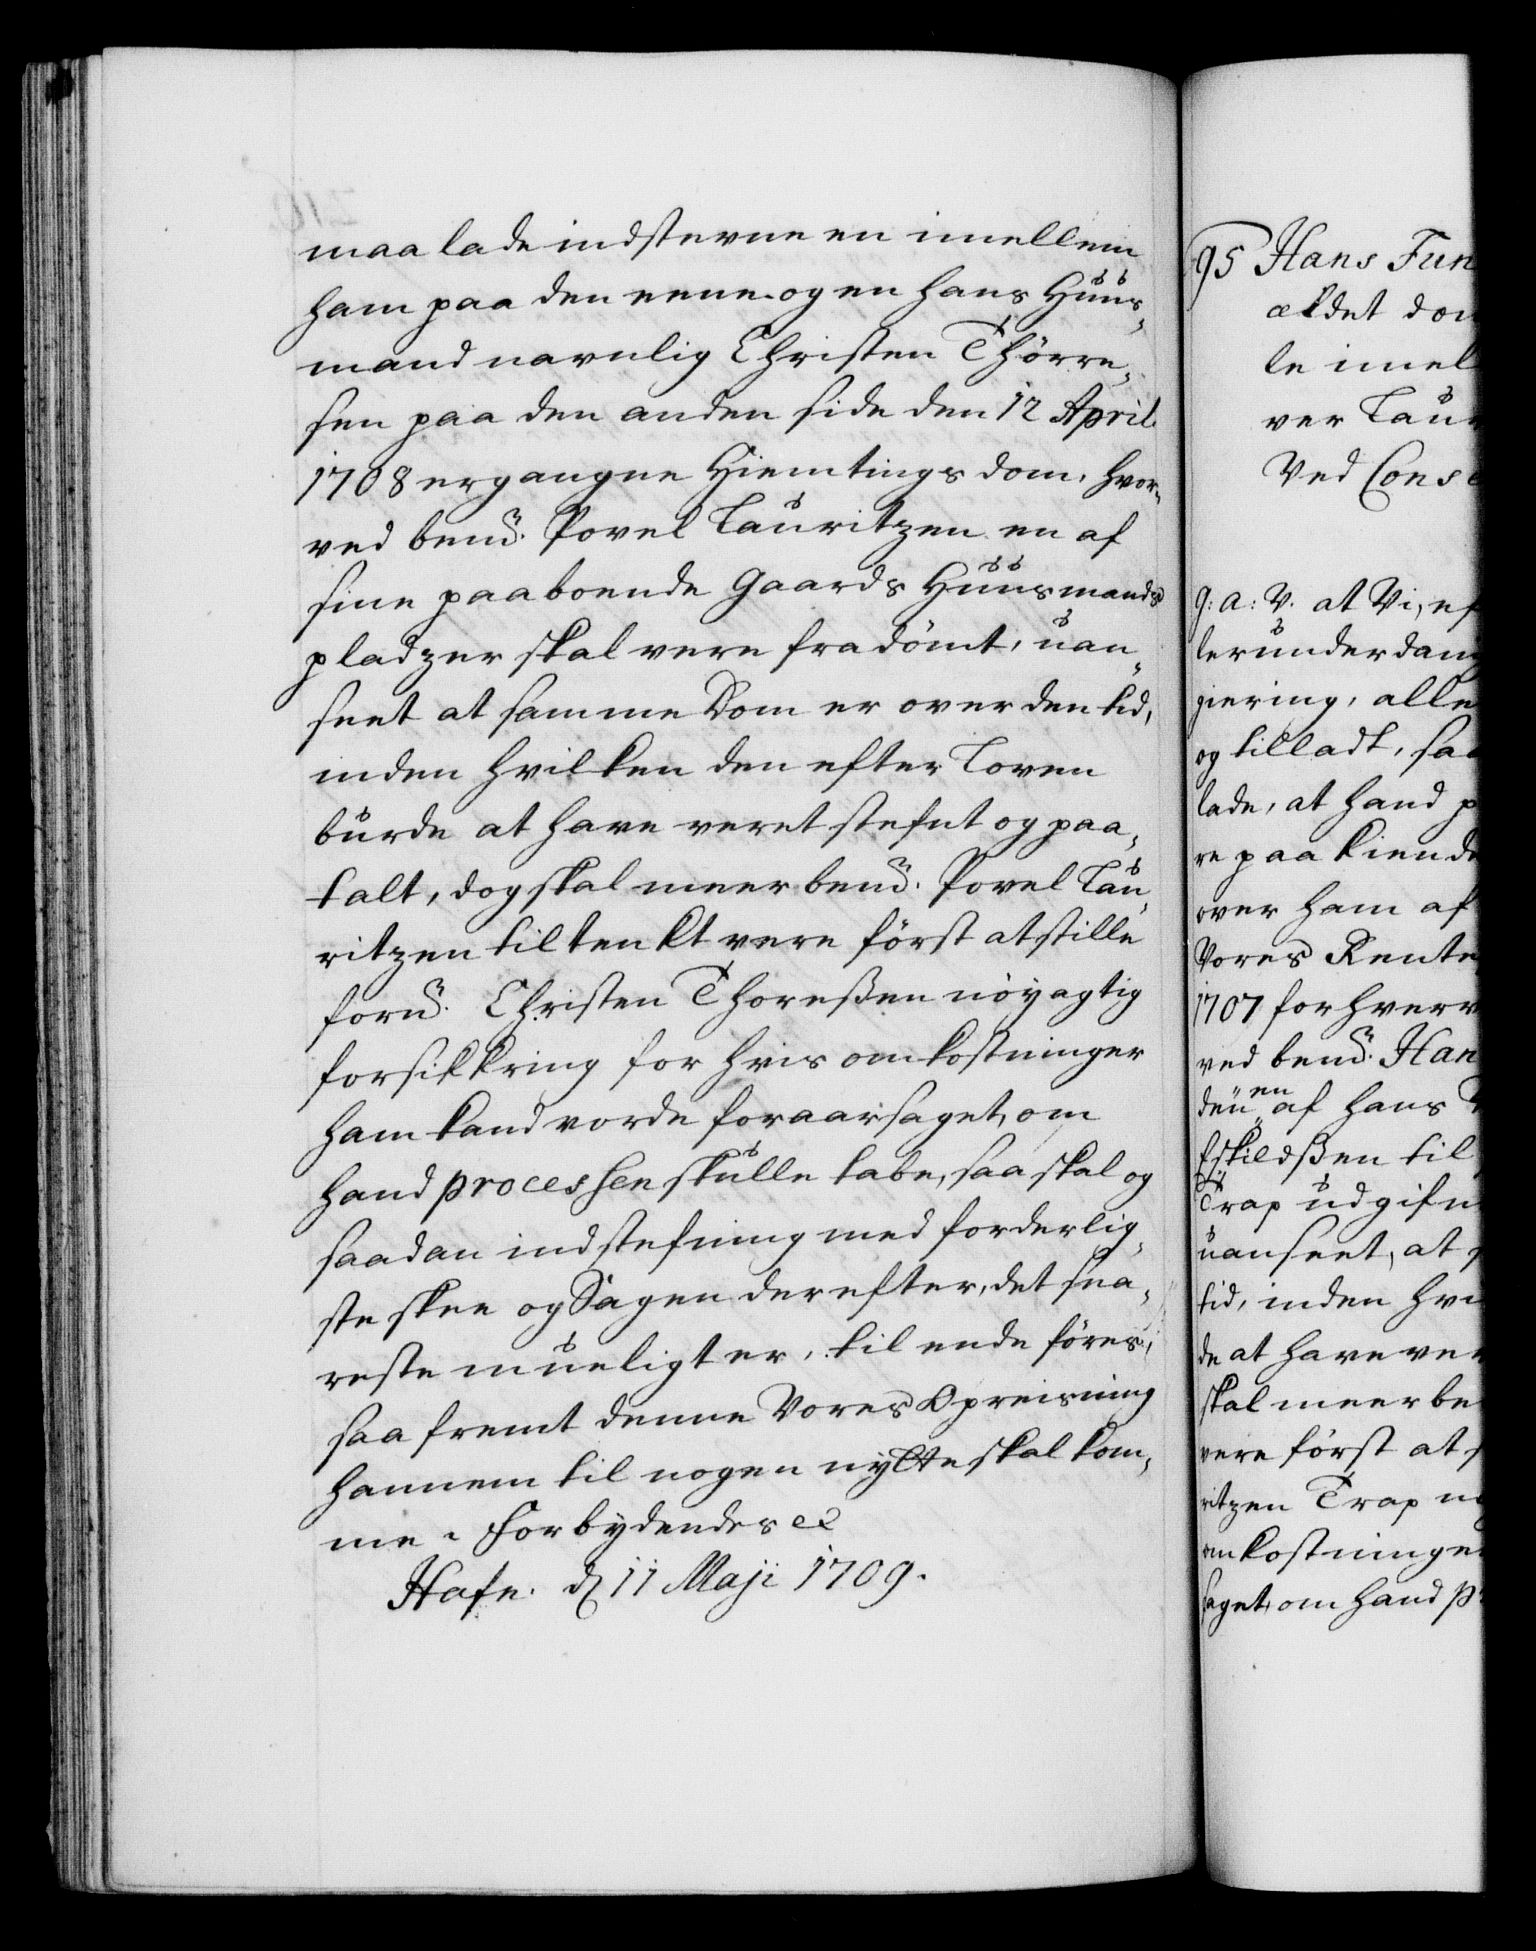 maa lade indstevne en imellem
ham paa den eene og en hans Huus-
mand navnlig Christen Thörre-
sen paa den anden side den 12 April.
1708 ergangne Hiemtings dom, hvor-
ved bemd. Povel Lauritzen en af
sine paaboende Gaards Huusmands
pladzer skal vere fradömt, uan-
seet at samme Dom er over den tid,
inden hvilken den efter Loven
burde at have veret stefnt og paa-
talt, dog skal meerbemd. Povel Lau-
ritzen tiltenkt vere först at stille
fornd. Christen Thoreßen nöyagtig
forsikkring for hvis omkostninger
ham kand vorde foraarsaget, om
hand processen skulle tabe, saa skal og
saadan indstefning med forderlig-
ste skee og Sagen derefter, det sna-
reste mueligt er, til ende föres,
saa fremt denne Vores Opreisning
hannem til nogen nytte skal kom-
me. Forbydendes etc
Hafn. d 11 Maji 1709.
95 Hans Fun
ældet dom
le imel
ver Lau
Ved Cons
G: A: V. at Vi, ef
lerunderdan
giering, alle
og tilladt, saa
lade, at hand p
re paakiende
over ham af
Vores Rente
1707 forhverv
ved bemd. Han
den en af hans
Eskildßen til
Trap udgifn
uanseet, at
tid, inden hvi
de at have ver
skal meerbe
vere först at s
ritzen Trap n
omkostninge
saget, om hand p